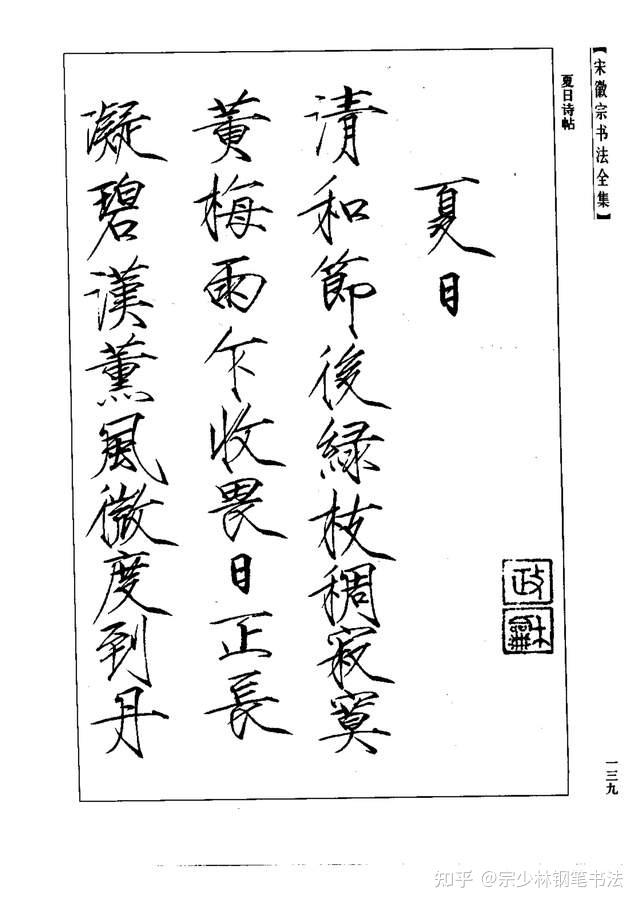 【宋徽宗书法全集】
夏日诗帖
夏日
清和節後緑枝稠寂寞
黄梅雨乍收畏日正長
凝碧漢薰風微度到丹
政
龢
一三九
知乎 @宗少林钢笔书法